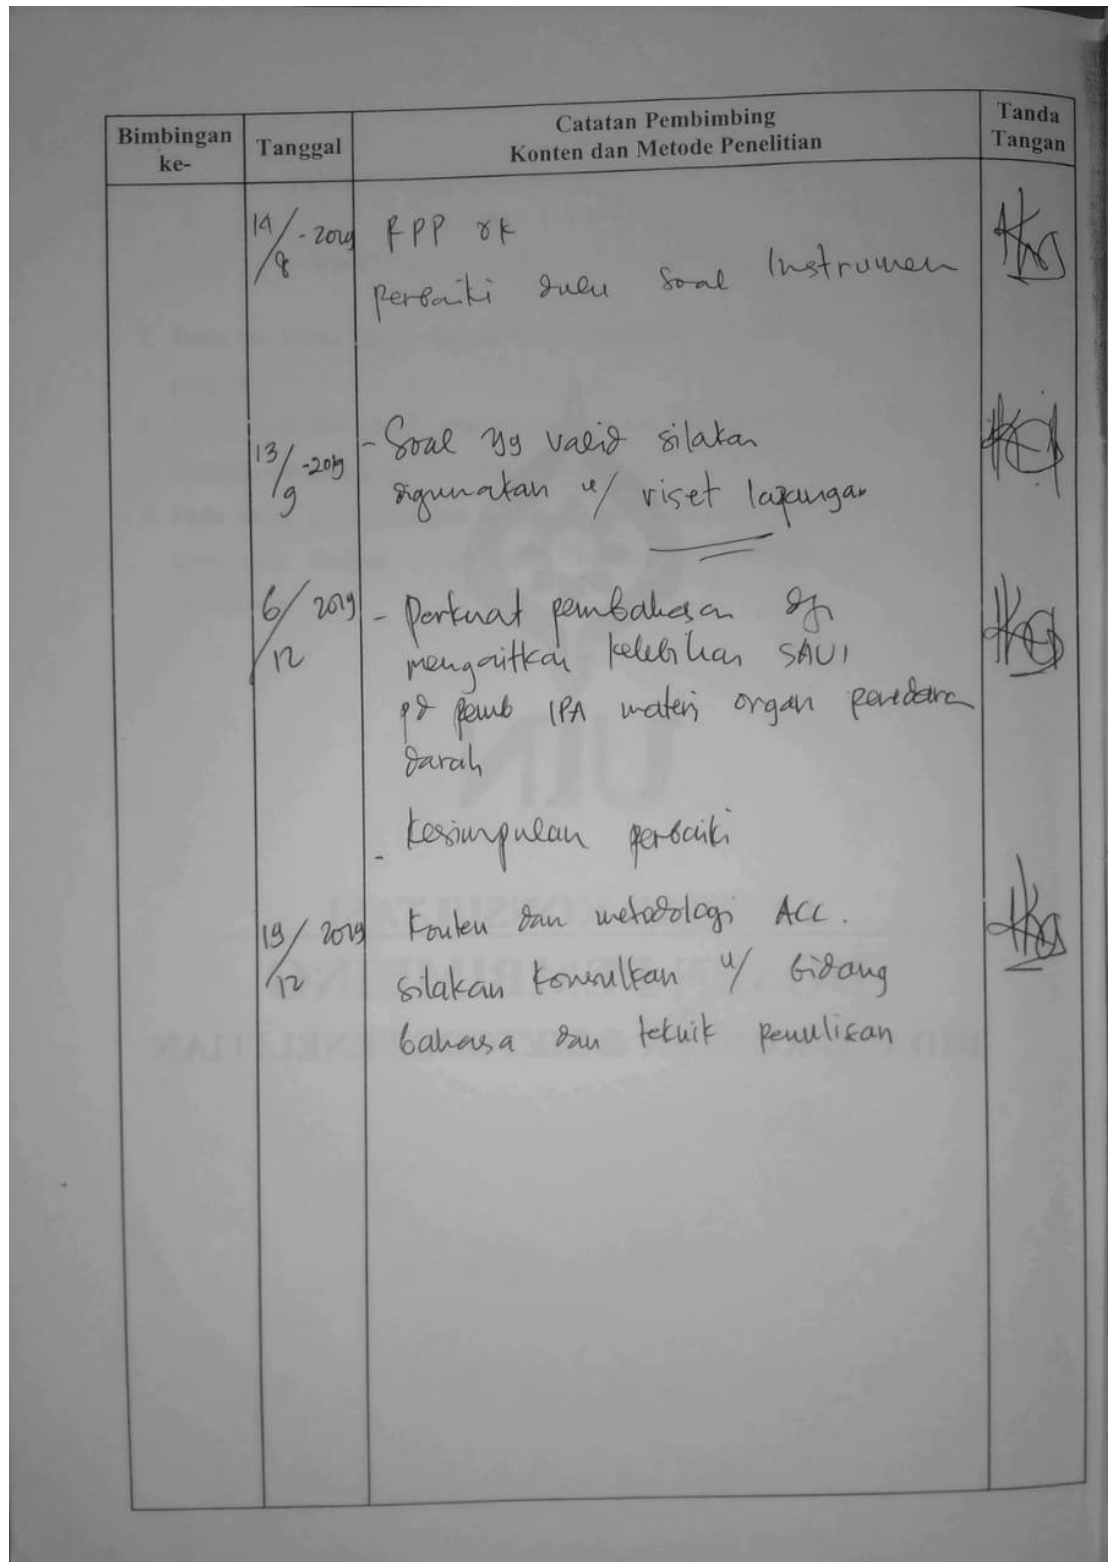 Bimbingan ke-
Tanggal
Catatan Pembimbing
Konten dan Metode Penelitian
Tanda Tangan
14/8 - 2019
RPP ok
perbaiki dulu soal Instrumen
13/9 - 2019
- Soal yg valid silakan
digunakan u/ riset lapangan
6/12 2019
- Perkuat pembahasan dg
mengaitkan kelebihan SAVI
pd pemb IPA materi organ peredaran
darah
- Kesimpulan perbaiki
19/12 2019
Konten dan metodologi ACC.
silakan konsultkan u/ bidang
bahasa dan teknik penulisan
UIN